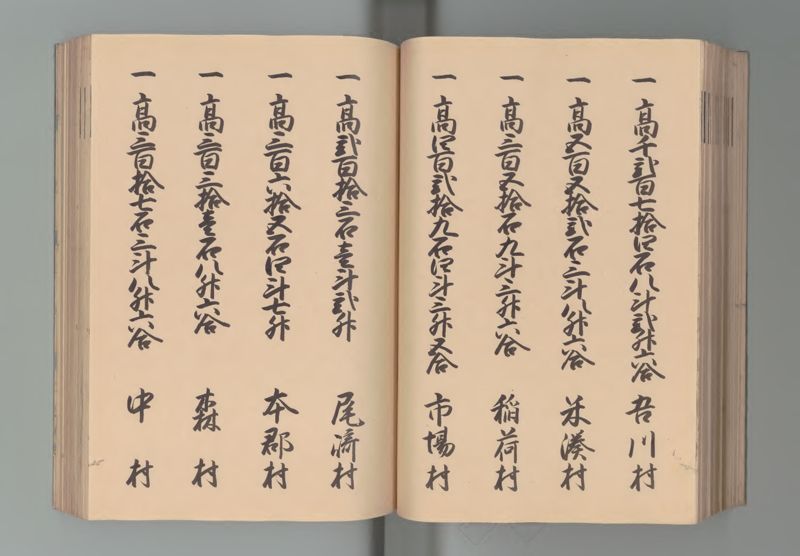 一高千弐百七拾四石八斗弐升六合 吾川村
一高五百五拾弐石三斗八升六合 米湊村
一高三百五拾石九斗三升六合 稲荷村
一高四百弐拾九石四斗三升五合 市場村
一高弐百拾三石壱斗弐升 尾崎村
一高三百六拾五石四斗七升 本郡村
一高三百三拾壱石八升六合 森村
一高三百拾七石三斗八升六合 中村